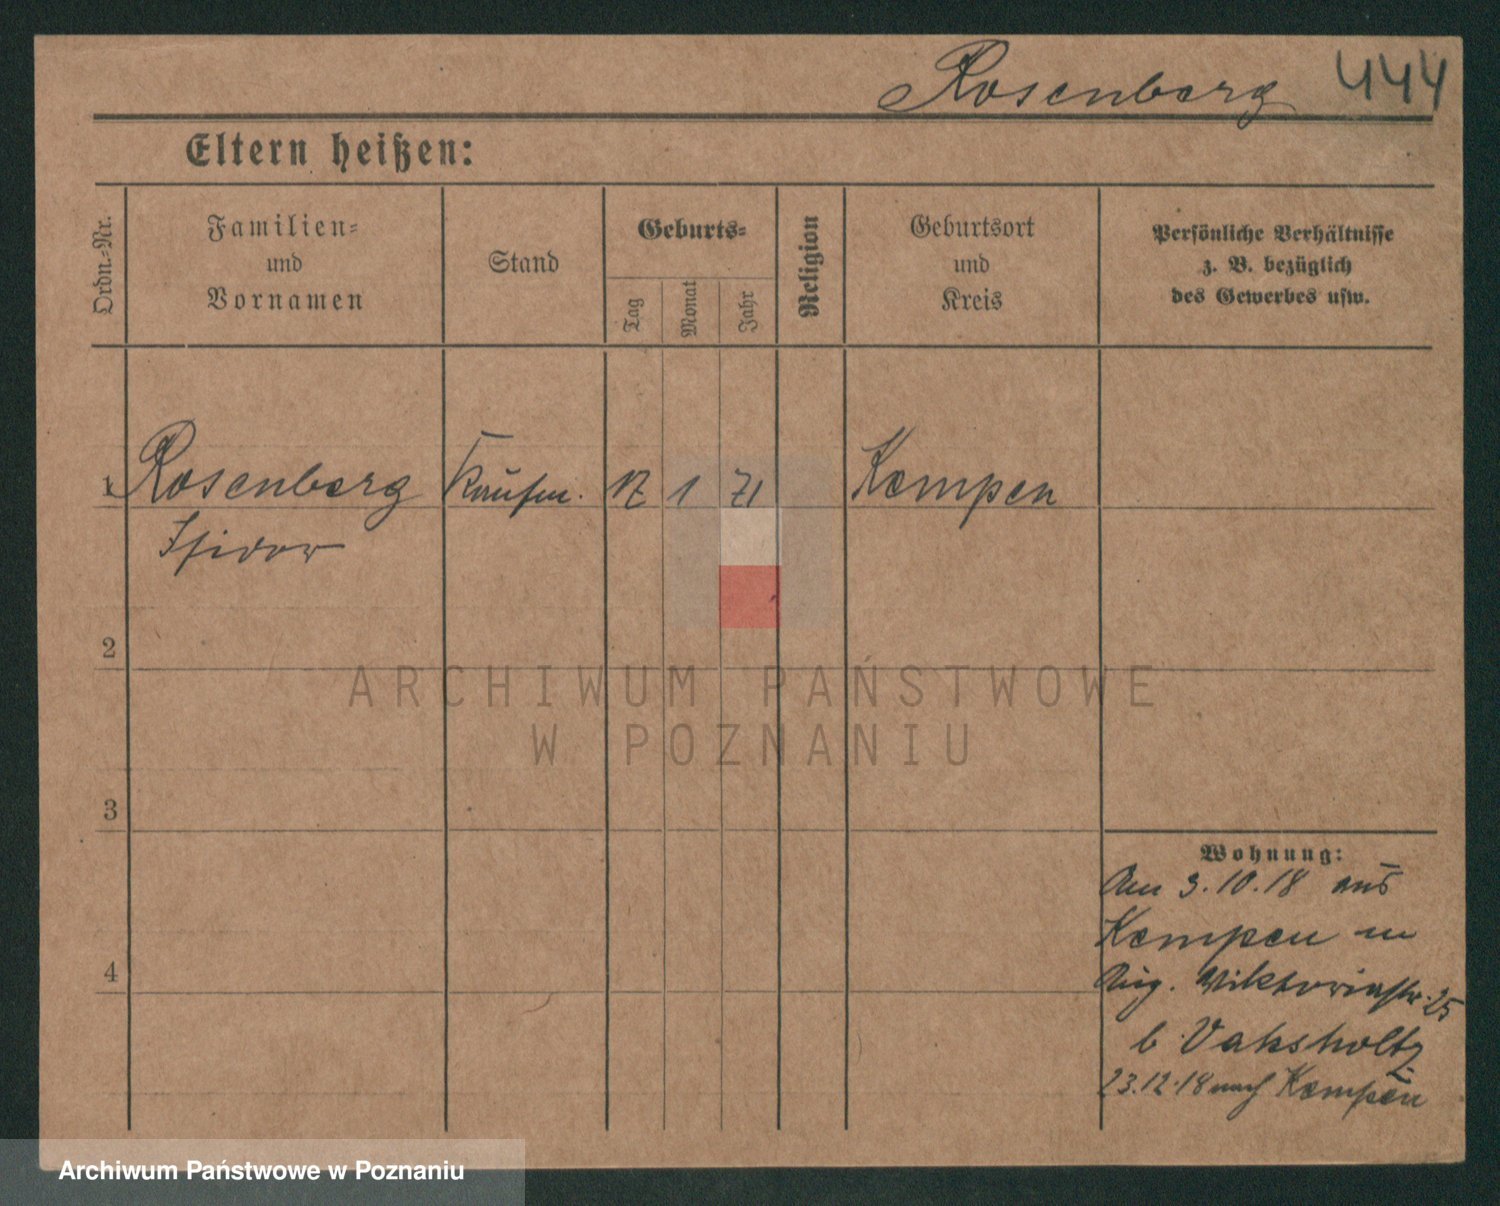 Rosenberg 444
Eltern heißen:
Ordn.-Nr.
Familien-
und
Vornamen
Stand
Geburts-
Tag
Monat
Jahr
Religion
Geburtsort
und
Kreis
Persönliche Verhältnisse
z. B. bezüglich
des Gewerbes usw.
1 Rosenberg Kaufm. 17 1 71 Kempen
Isidor
2
3
4
Wohnung:
Am 3.10.18 aus
Kempen
Viktoriastr. 25
b. Vaksholtz
23.12.18 nach Kempen
ARCHIWUM PAŃSTWOWE
W POZNANIU
Archiwum Państwowe w Poznaniu